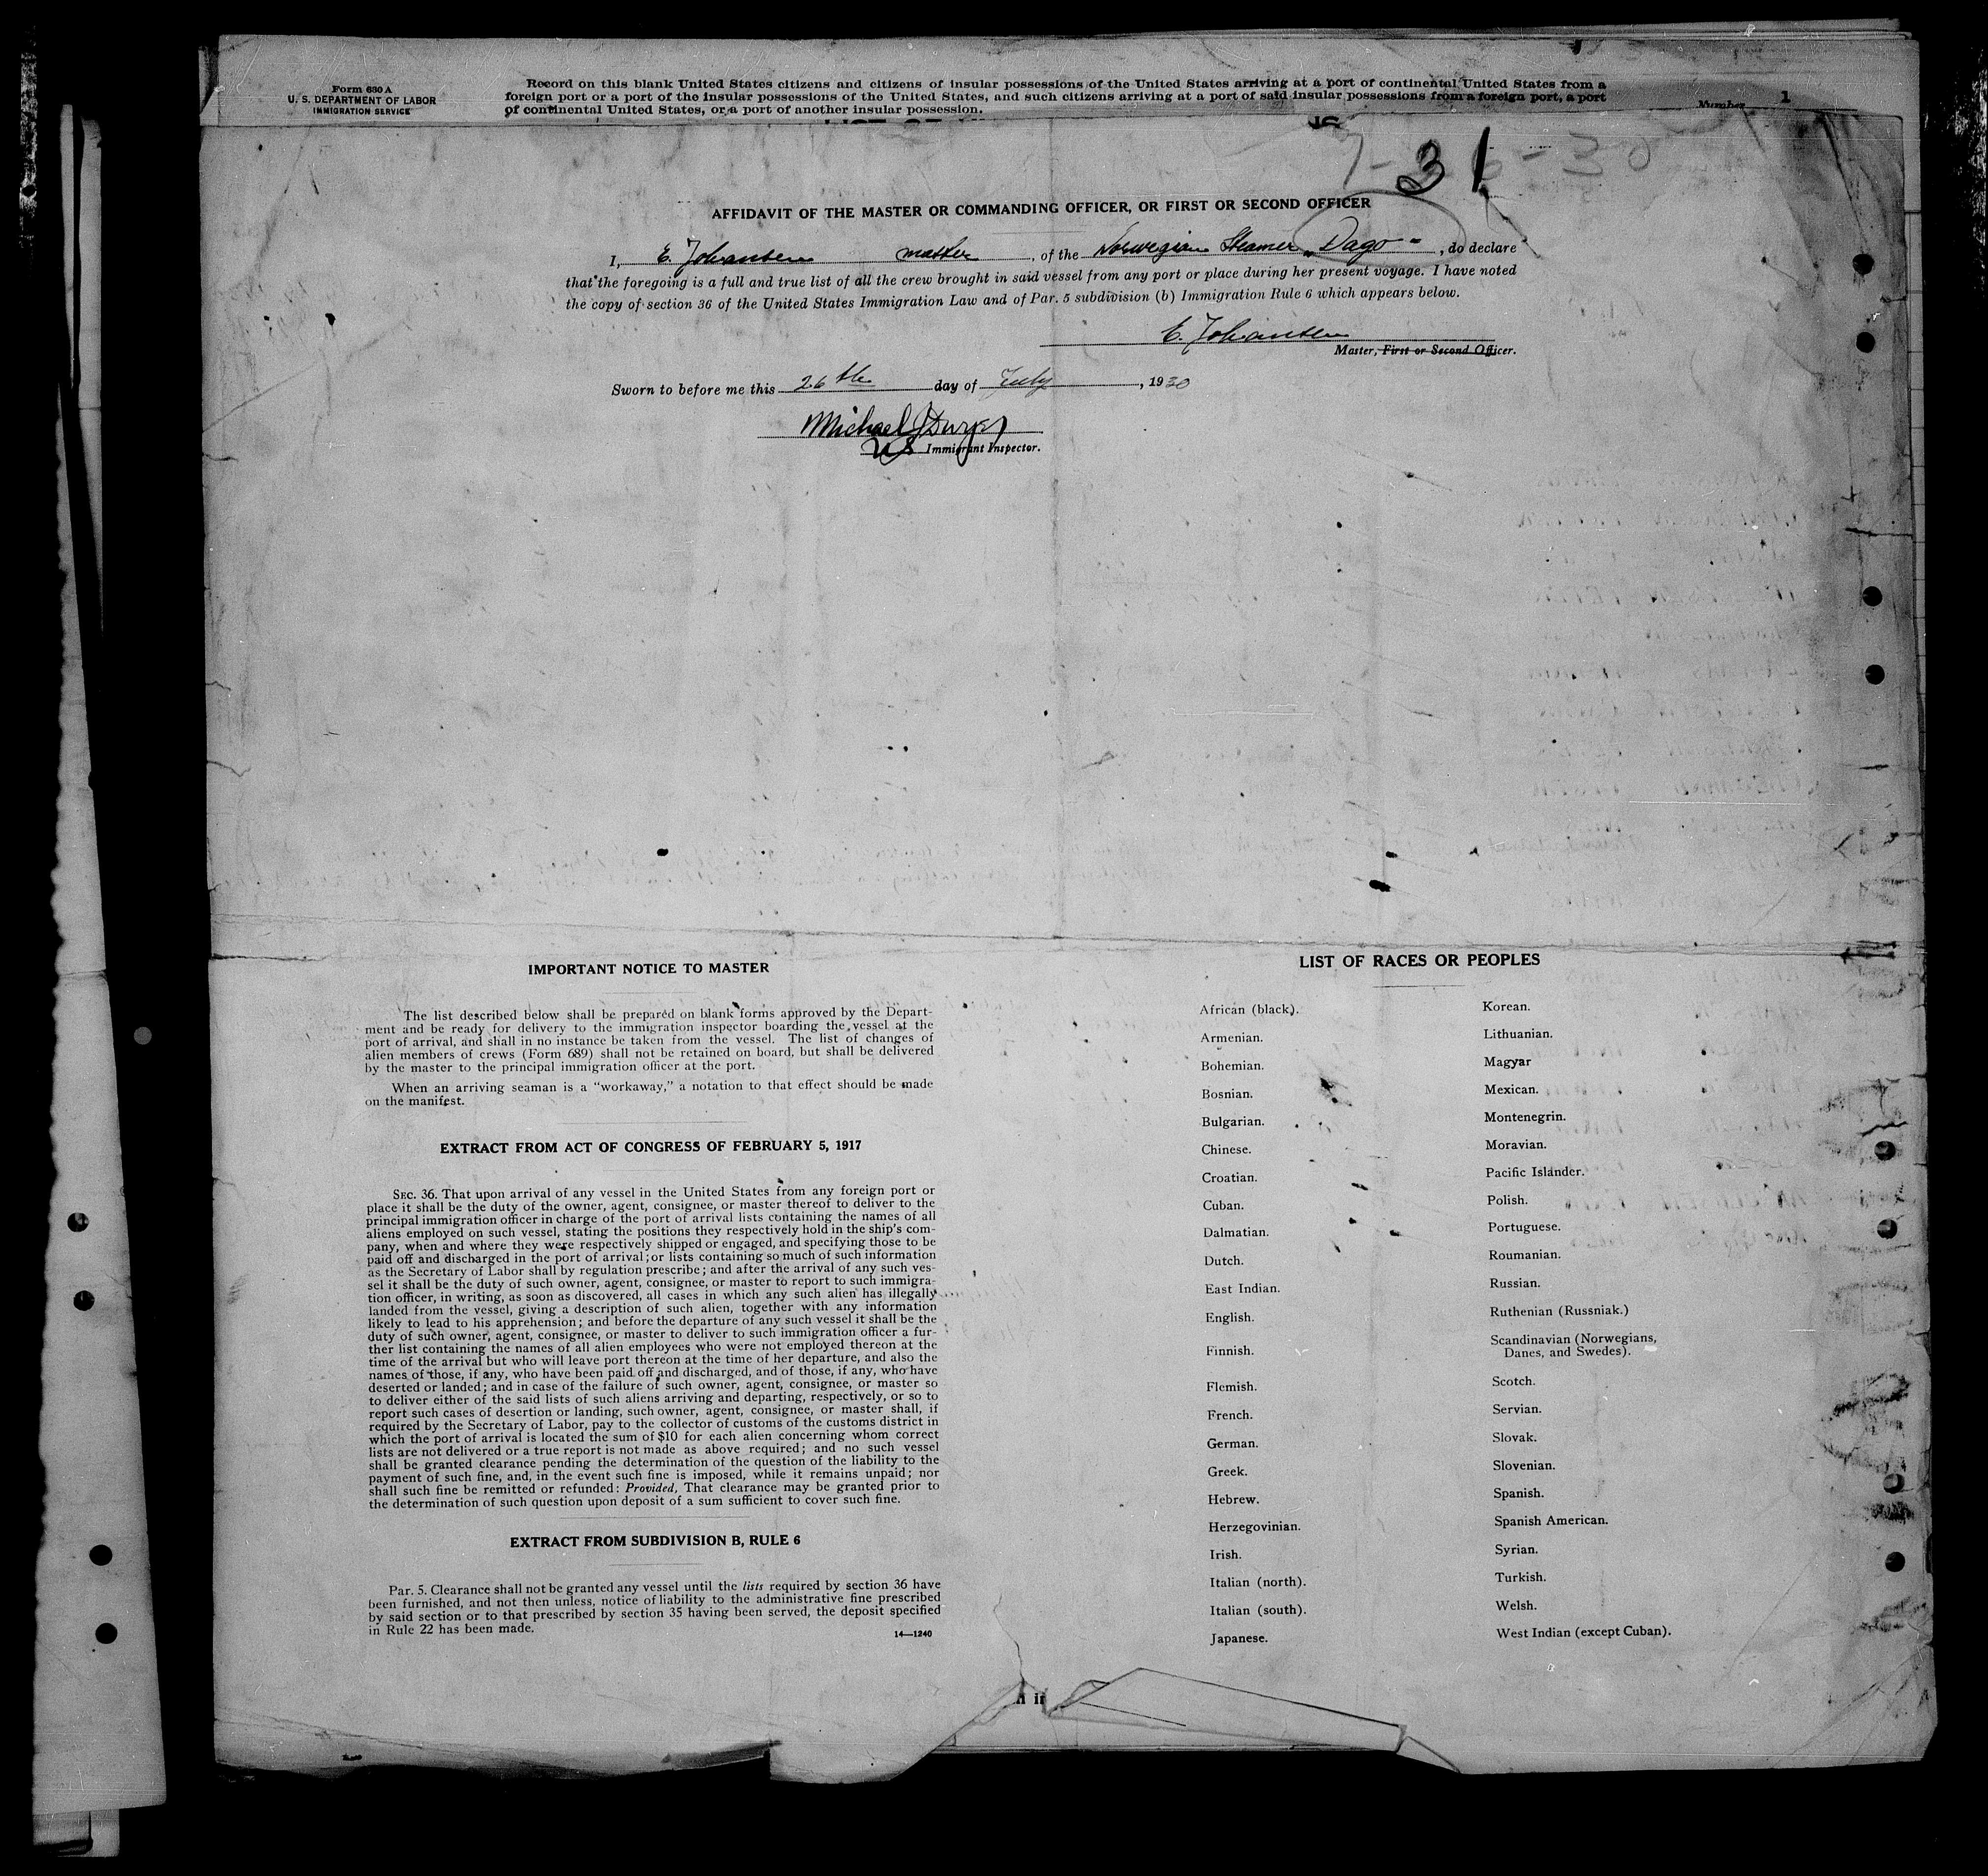 Form 630 A
U. S. DEPARTMENT OF LABOR
IMMIGRATION SERVICE
Record on this blank United States citizens and citizens of insular possessions of the United States arriving at a port of continental United States from a
foreign port or a port of the insular possessions of the United States, and such citizens arriving at a port of said insular possessions from a foreign port, a port
of continental United States, or a port of another insular possession.
Number 1
7-26-30
31
AFFIDAVIT OF THE MASTER OR COMMANDING OFFICER, OR FIRST OR SECOND OFFICER
I, E. Johansen master, of the Norwegian Steamer "Dago", do declare
that the foregoing is a full and true list of all the crew brought in said vessel from any port or place during her present voyage. I have noted
the copy of section 36 of the United States Immigration Law and of Par. 5 subdivision (b) Immigration Rule 6 which appears below.
E. Johansen
Master, First or Second Officer.
Sworn to before me this 26th day of July, 1930
Michael
US Immigrant Inspector.
IMPORTANT NOTICE TO MASTER
The list described below shall be prepared on blank forms approved by the Depart-
ment and be ready for delivery to the immigration inspector boarding the vessel at the
port of arrival, and shall in no instance be taken from the vessel. The list of changes of
alien members of crews (Form 689) shall not be retained on board, but shall be delivered
by the master to the principal immigration officer at the port.
When an arriving seaman is a "workaway," a notation to that effect should be made
on the manifest.
EXTRACT FROM ACT OF CONGRESS OF FEBRUARY 5, 1917
SEC. 36. That upon arrival of any vessel in the United States from any foreign port or
place it shall be the duty of the owner, agent, consignee, or master thereof to deliver to the
principal immigration officer in charge of the port of arrival lists containing the names of all
aliens employed on such vessel, stating the positions they respectively hold in the ship's com-
pany, when and where they were respectively shipped or engaged, and specifying those to be
paid off and discharged in the port of arrival; or lists containing so much of such information
as the Secretary of Labor shall by regulation prescribe; and after the arrival of any such ves-
sel it shall be the duty of such owner, agent, consignee, or master to report to such immigra-
tion officer, in writing, as soon as discovered, all cases in which any such alien has illegally
landed from the vessel, giving a description of such alien, together with any information
likely to lead to his apprehension; and before the departure of any such vessel it shall be the
duty of such owner, agent, consignee, or master to deliver to such immigration officer a fur-
ther list containing the names of all alien employees who were not employed thereon at the
time of the arrival but who will leave port thereon at the time of her departure, and also the
names of those, if any, who have been paid off and discharged, and of those, if any, who have
deserted or landed; and in case of the failure of such owner, agent, consignee, or master so
to deliver either of the said lists of such aliens arriving and departing, respectively, or so to
report such cases of desertion or landing, such owner, agent, consignee, or master shall, if
required by the Secretary of Labor, pay to the collector of customs of the customs district in
which the port of arrival is located the sum of $10 for each alien concerning whom correct
lists are not delivered or a true report is not made as above required; and no such vessel
shall be granted clearance pending the determination of the question of the liability to the
payment of such fine, and, in the event such fine is imposed, while it remains unpaid; nor
shall such fine be remitted or refunded: Provided, That clearance may be granted prior to
the determination of such question upon deposit of a sum sufficient to cover such fine.
EXTRACT FROM SUBDIVISION B, RULE 6
Par. 5. Clearance shall not be granted any vessel until the lists required by section 36 have
been furnished, and not then unless, notice of liability to the administrative fine prescribed
by said section or to that prescribed by section 35 having been served, the deposit specified
in Rule 22 has been made.
14—1240
LIST OF RACES OR PEOPLES
African (black).
Armenian.
Bohemian.
Bosnian.
Bulgarian.
Chinese.
Croatian.
Cuban.
Dalmatian.
Dutch.
East Indian.
English.
Finnish.
Flemish.
French.
German.
Greek.
Hebrew.
Herzegovinian.
Irish.
Italian (north).
Italian (south).
Japanese.
Korean.
Lithuanian.
Magyar
Mexican.
Montenegrin.
Moravian.
Pacific Islander.
Polish.
Portuguese.
Roumanian.
Russian.
Ruthenian (Russniak.)
Scandinavian (Norwegians,
Danes, and Swedes).
Scotch.
Servian.
Slovak.
Slovenian.
Spanish.
Spanish American.
Syrian.
Turkish.
Welsh.
West Indian (except Cuban).